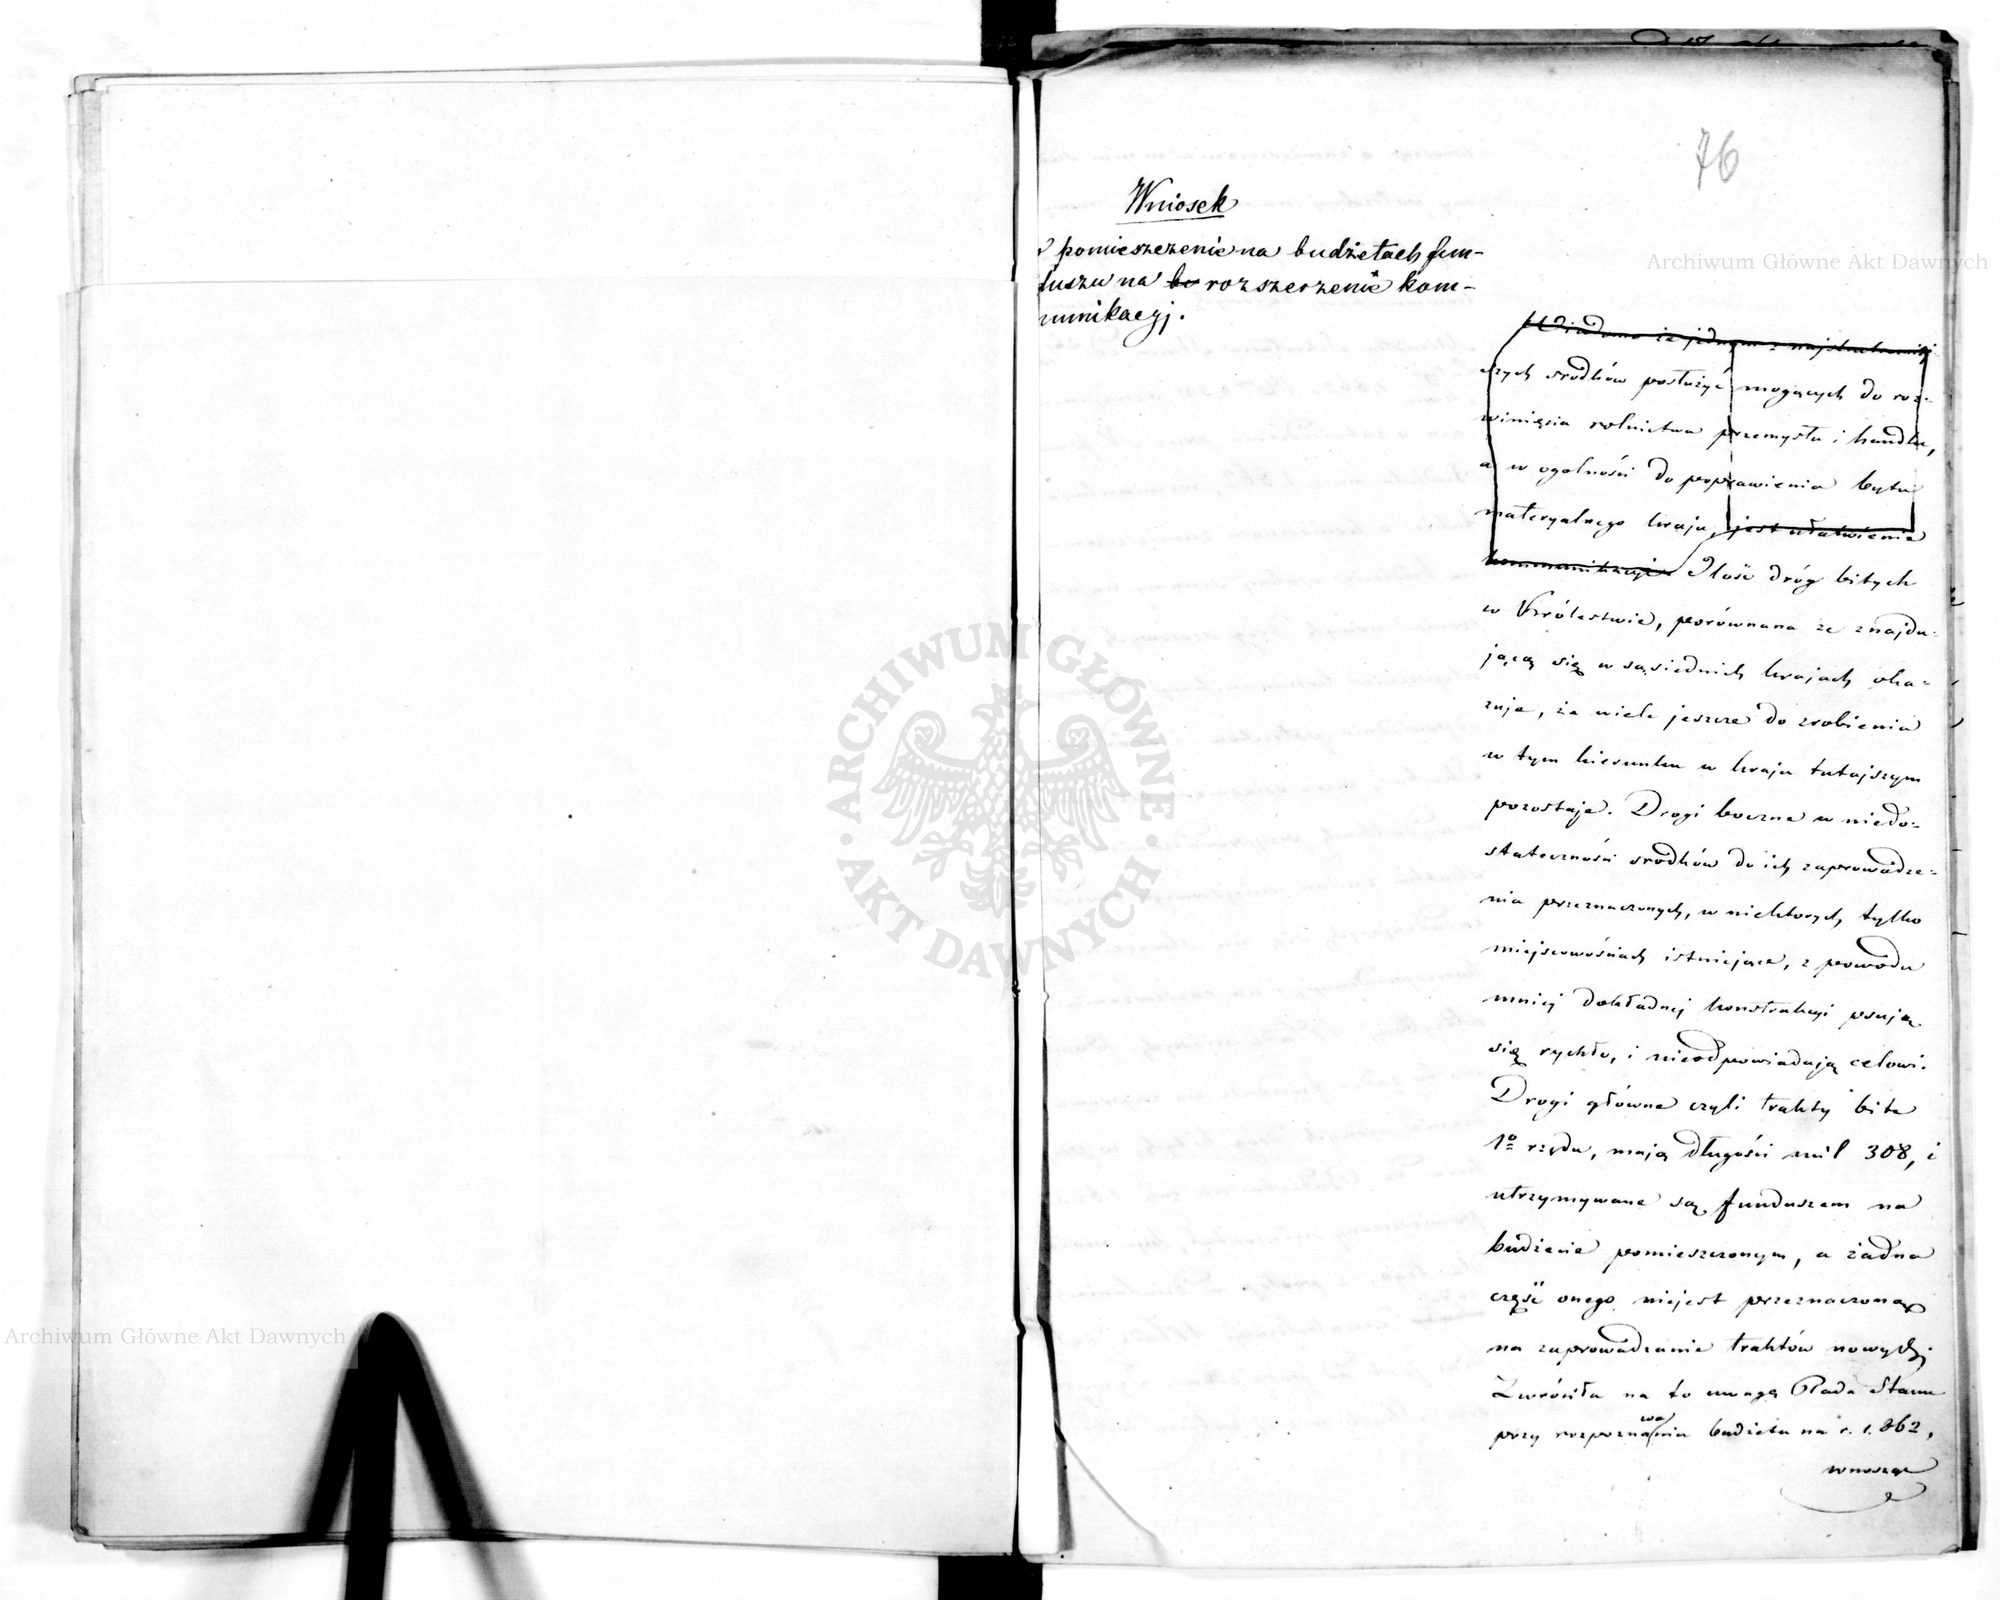 76
Wniosek
o pomieszczenie na budżetach fun-
duszu na bo rozszerzenie kom-
munikacyj.
Wiadomo że jednym z najskuteczniej
szych srodków posłużyć mogących do roz-
winięcia rolnictwa przemysłu i handlu,
a w ogolności do poprawienia bytu
materyalnego kraju, jest ułatwienie
kommunikacyi. Ilość dróg bitych
w Królestwie, porównana ze znajdu-
jącą się w sąsiednich krajach oka-
zuje, że wiele jeszcze do zrobienia
w tym kierunku w kraju tutajszym
pozostaje. Drogi boczne w niedo-
stateczności srodków do ich zaprowadze-
nia przeznaczonych, w niektorych tylko
miejscowościach istniejące, z powodu
mniej dokładnej konstrukcyi psują
się rychło, i nieodpowiadają celowi.
Drogi główne czyli trakty bite
1o rzędu, mają długości mil 308, i
utrzymywane są funduszem na
budżecie pomieszczonym, a żadna
część onego niejest przeznaczona
na zaprowadzanie traktów nowych;
Zwróciła na to uwagę Rada Stanu
przy rozpoznawaniu budżetu na r. 1862,
wnosząc
ARCHIWUM GŁÓWNE AKT DAWNYCH
Archiwum Główne Akt Dawnych
Archiwum Główne Akt Dawnych